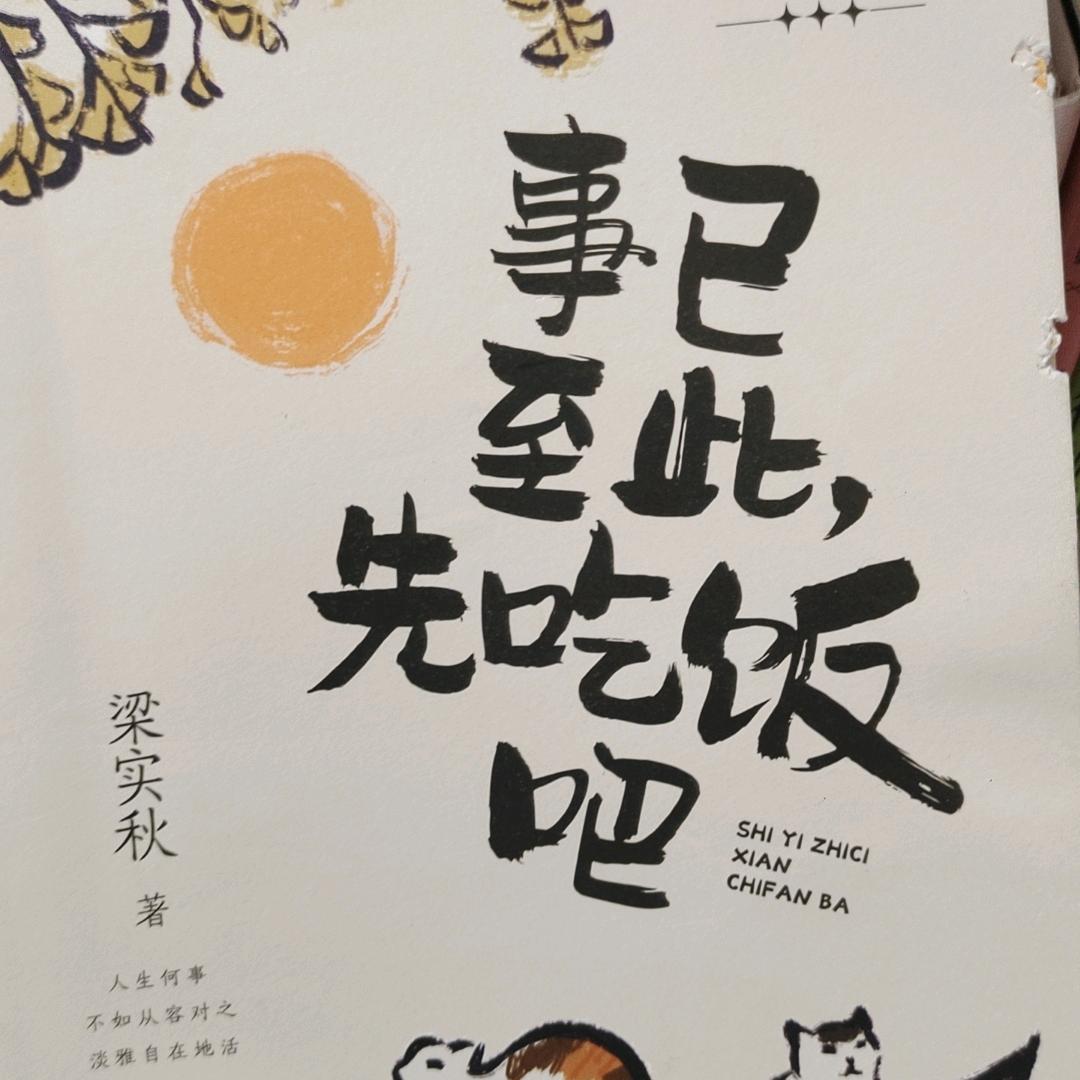 事已
至此，
先吃饭
吧
SHI YI ZHICI
XIAN
CHIFAN BA
梁实秋
著
人生何事
不如从容对之
淡雅自在地活